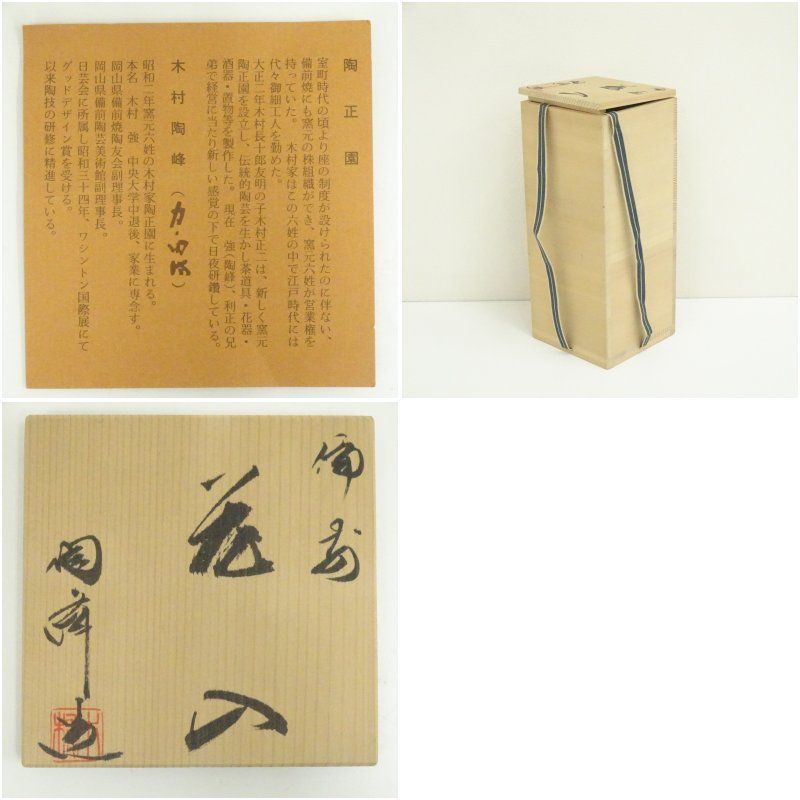 陶正園
室町時代の頃より座の制度が設けられたのに伴ない、
備前焼にも窯元の株組織ができ、窯元六姓が営業権を
持っていた。木村家はこの六姓の中で江戸時代には
代々御細工人を勤めた。
大正二年木村長十郎友明の子木村正二は、新しく窯元
陶正園を設立し、伝統的陶芸を生かし茶道具・花器・
酒器・置物等を製作した。現在 強(陶峰)、利正の兄
弟で経営に当たり新しい感覚の下で日夜研鑽している。
木村陶峰(
)
昭和二年窯元六姓の木村家陶正園に生まれる。
本名 木村 強 中央大学中退後、家業に専念す。
岡山県備前焼陶友会副理事長。
岡山県備前陶芸美術館副理事長。
日芸会に所属し昭和三十四年、ワシントン国際展にて
グッドデザイン賞を受ける。
以来陶技の研修に精進している。
備前
花入
陶峰造